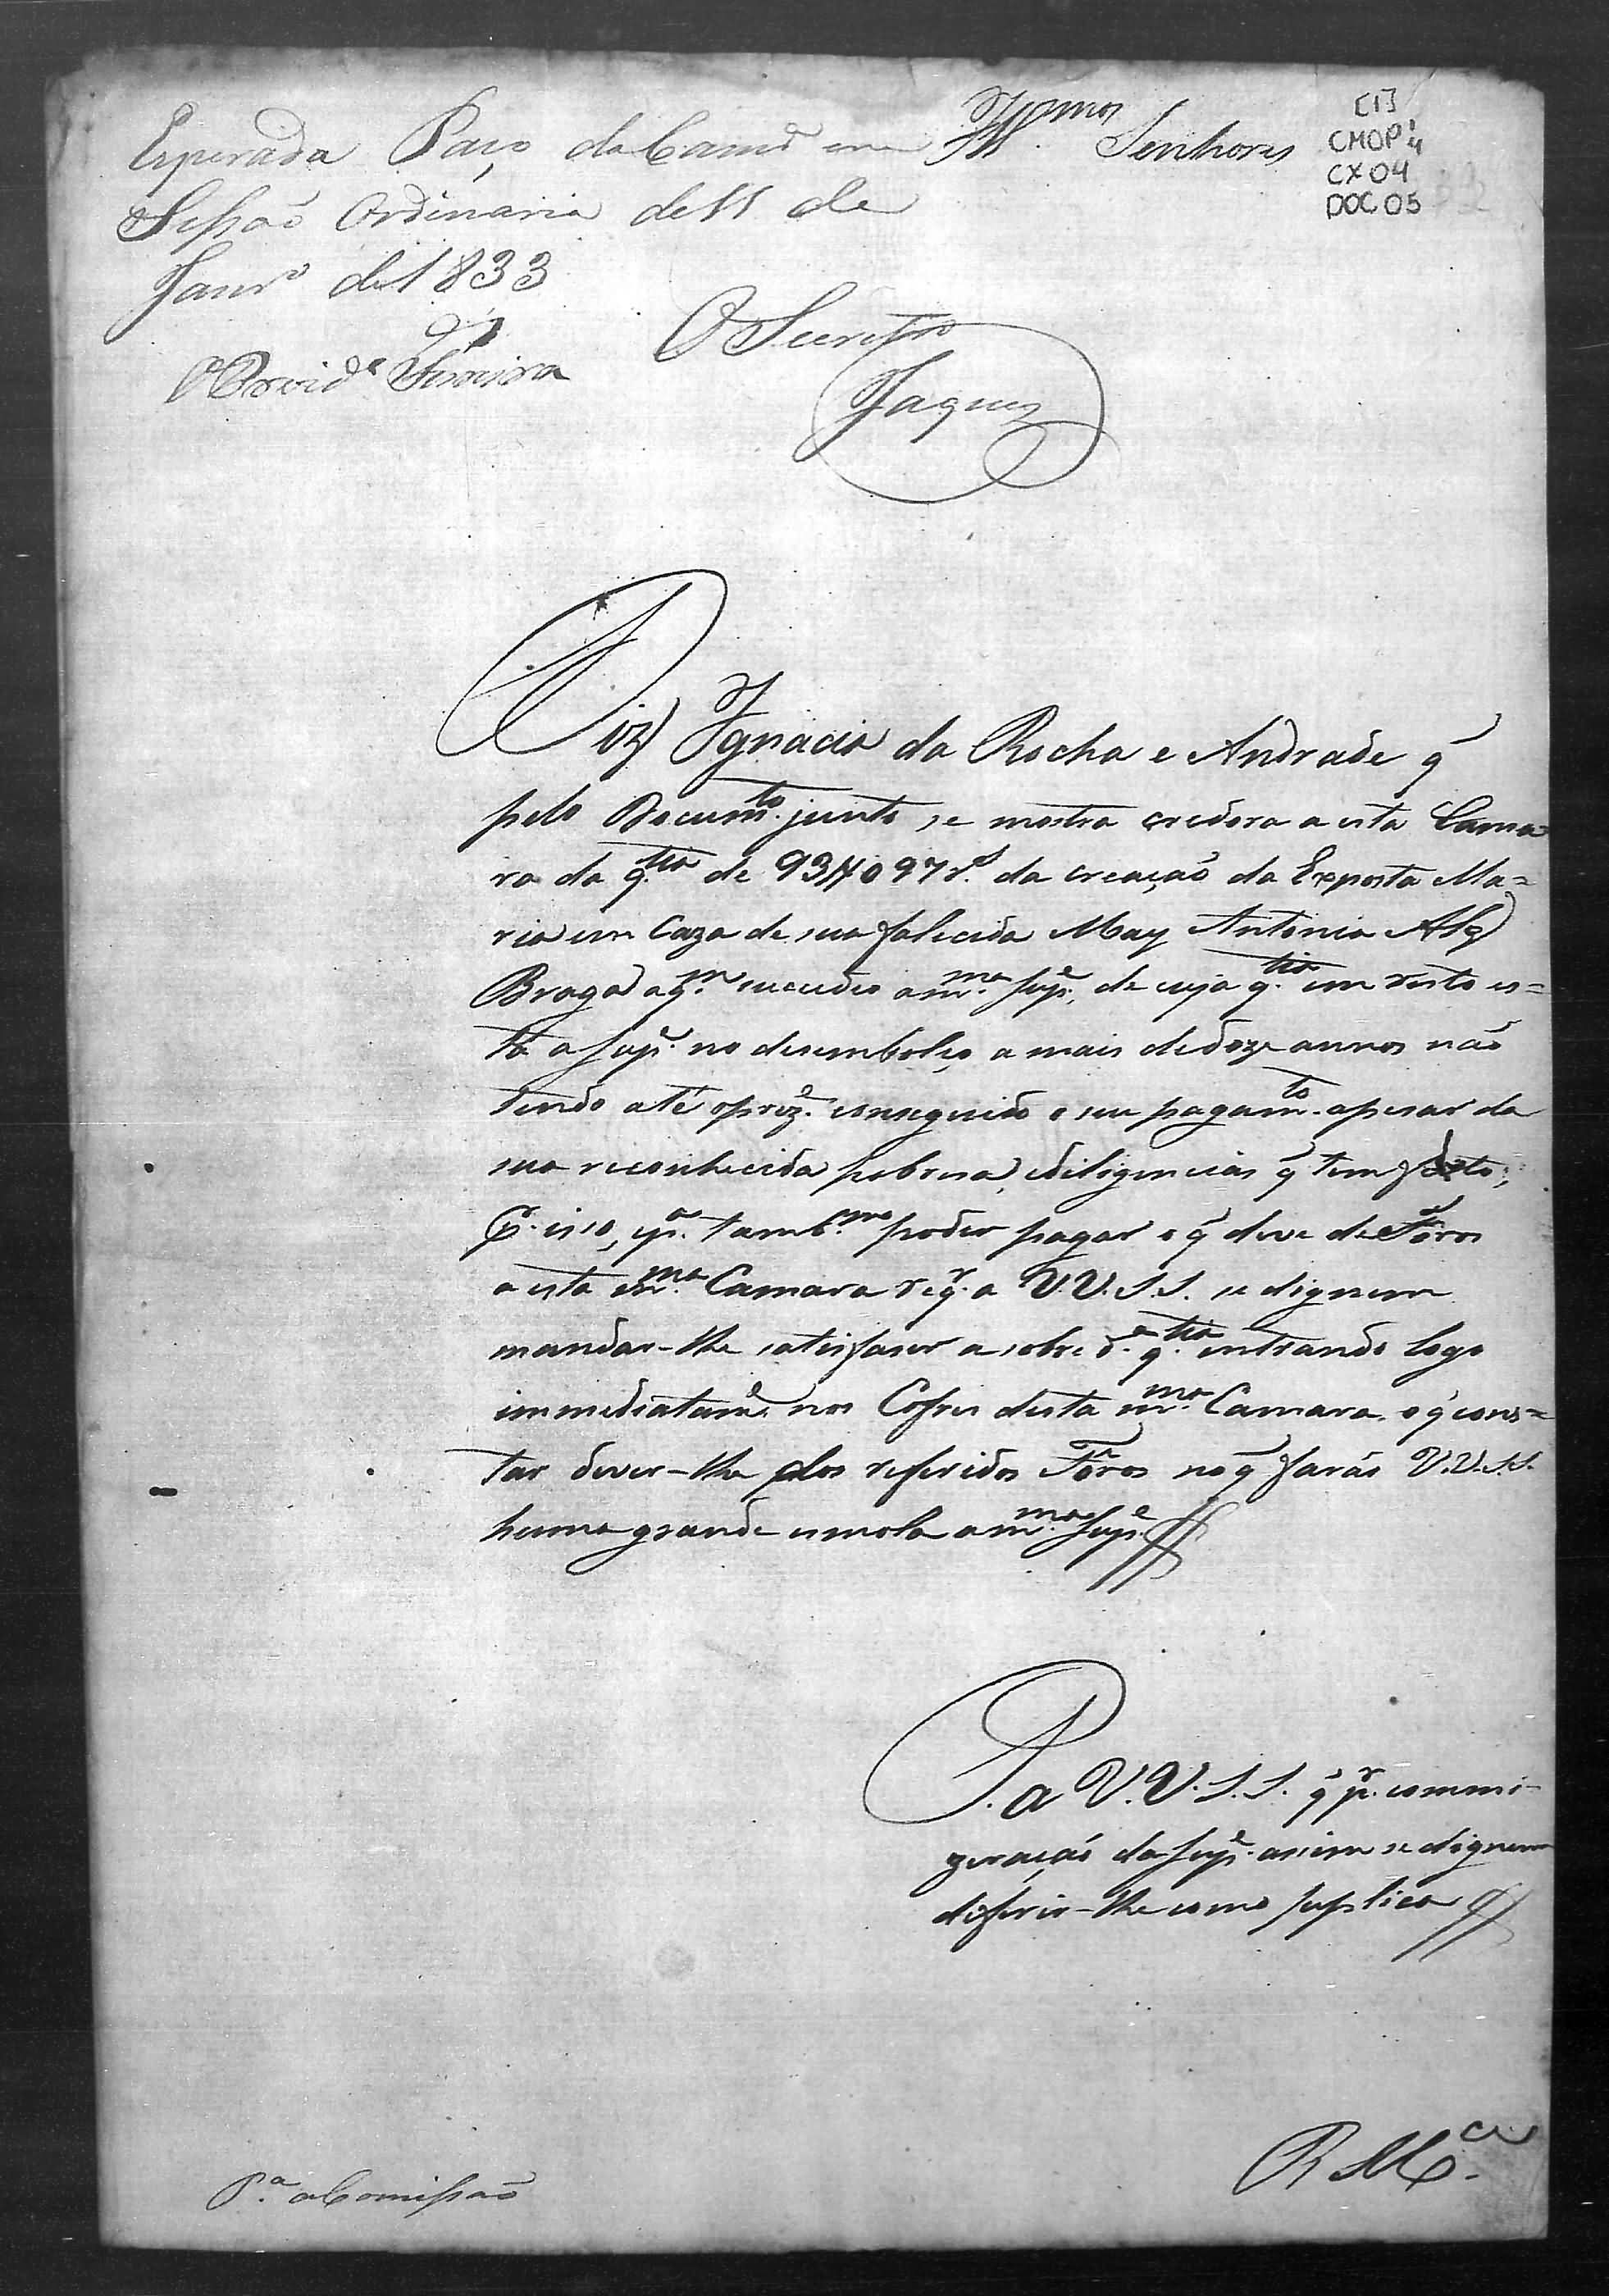 Illmos Senhores
[1]
CMOP 4
CX 04
DOC 05
Esperada Paço da Camª em
Sessaõ Ordinaria de 11 de
Janrº de 1833
O Secretrº
Jaques
O Prezidᵉ Ferreira
Diz Ignacia da Rocha e Andrade q̃
pelo Documto. junto, se mostra credora a esta Cama
ra da q.tia de 93$097 rs. da creaçaõ da Exposta Ma=
ria em Caza de sua falecida May Antonia Alz
Braga, a q.m sucedeo a m.ma Sup.e, de cuja q.tia em resto es=
tá a Sup.e no desembolço, a mais de doze annos naõ
tendo até o prez.e conseguido o seu pagam.to apesar da
sua reconhecida pobresa, e diligencias q̃ tem feito;
P.r isso, e p.a tamb.m poder pagar o q̃ deve de Fóros
a esta m.ma Camara req.r a V.V.S.S. se dignem
mandar-lhe satisfaser a sobred.a q.tia entrando logo
immediatam.e nos Cofres desta m.ma Camara, o q̃ cons=
tar dever-lhe dos referidos Fóros no q̃ faráõ V.V.S.S.
huma grande esmola a m.ma Sup.e
P. a V.V.S.S. q̃ p.r commi-
zeraçaõ da Sup.e assim se dignem
diferir-lhe como suplica
R M.ce
P.a a Comissaõ